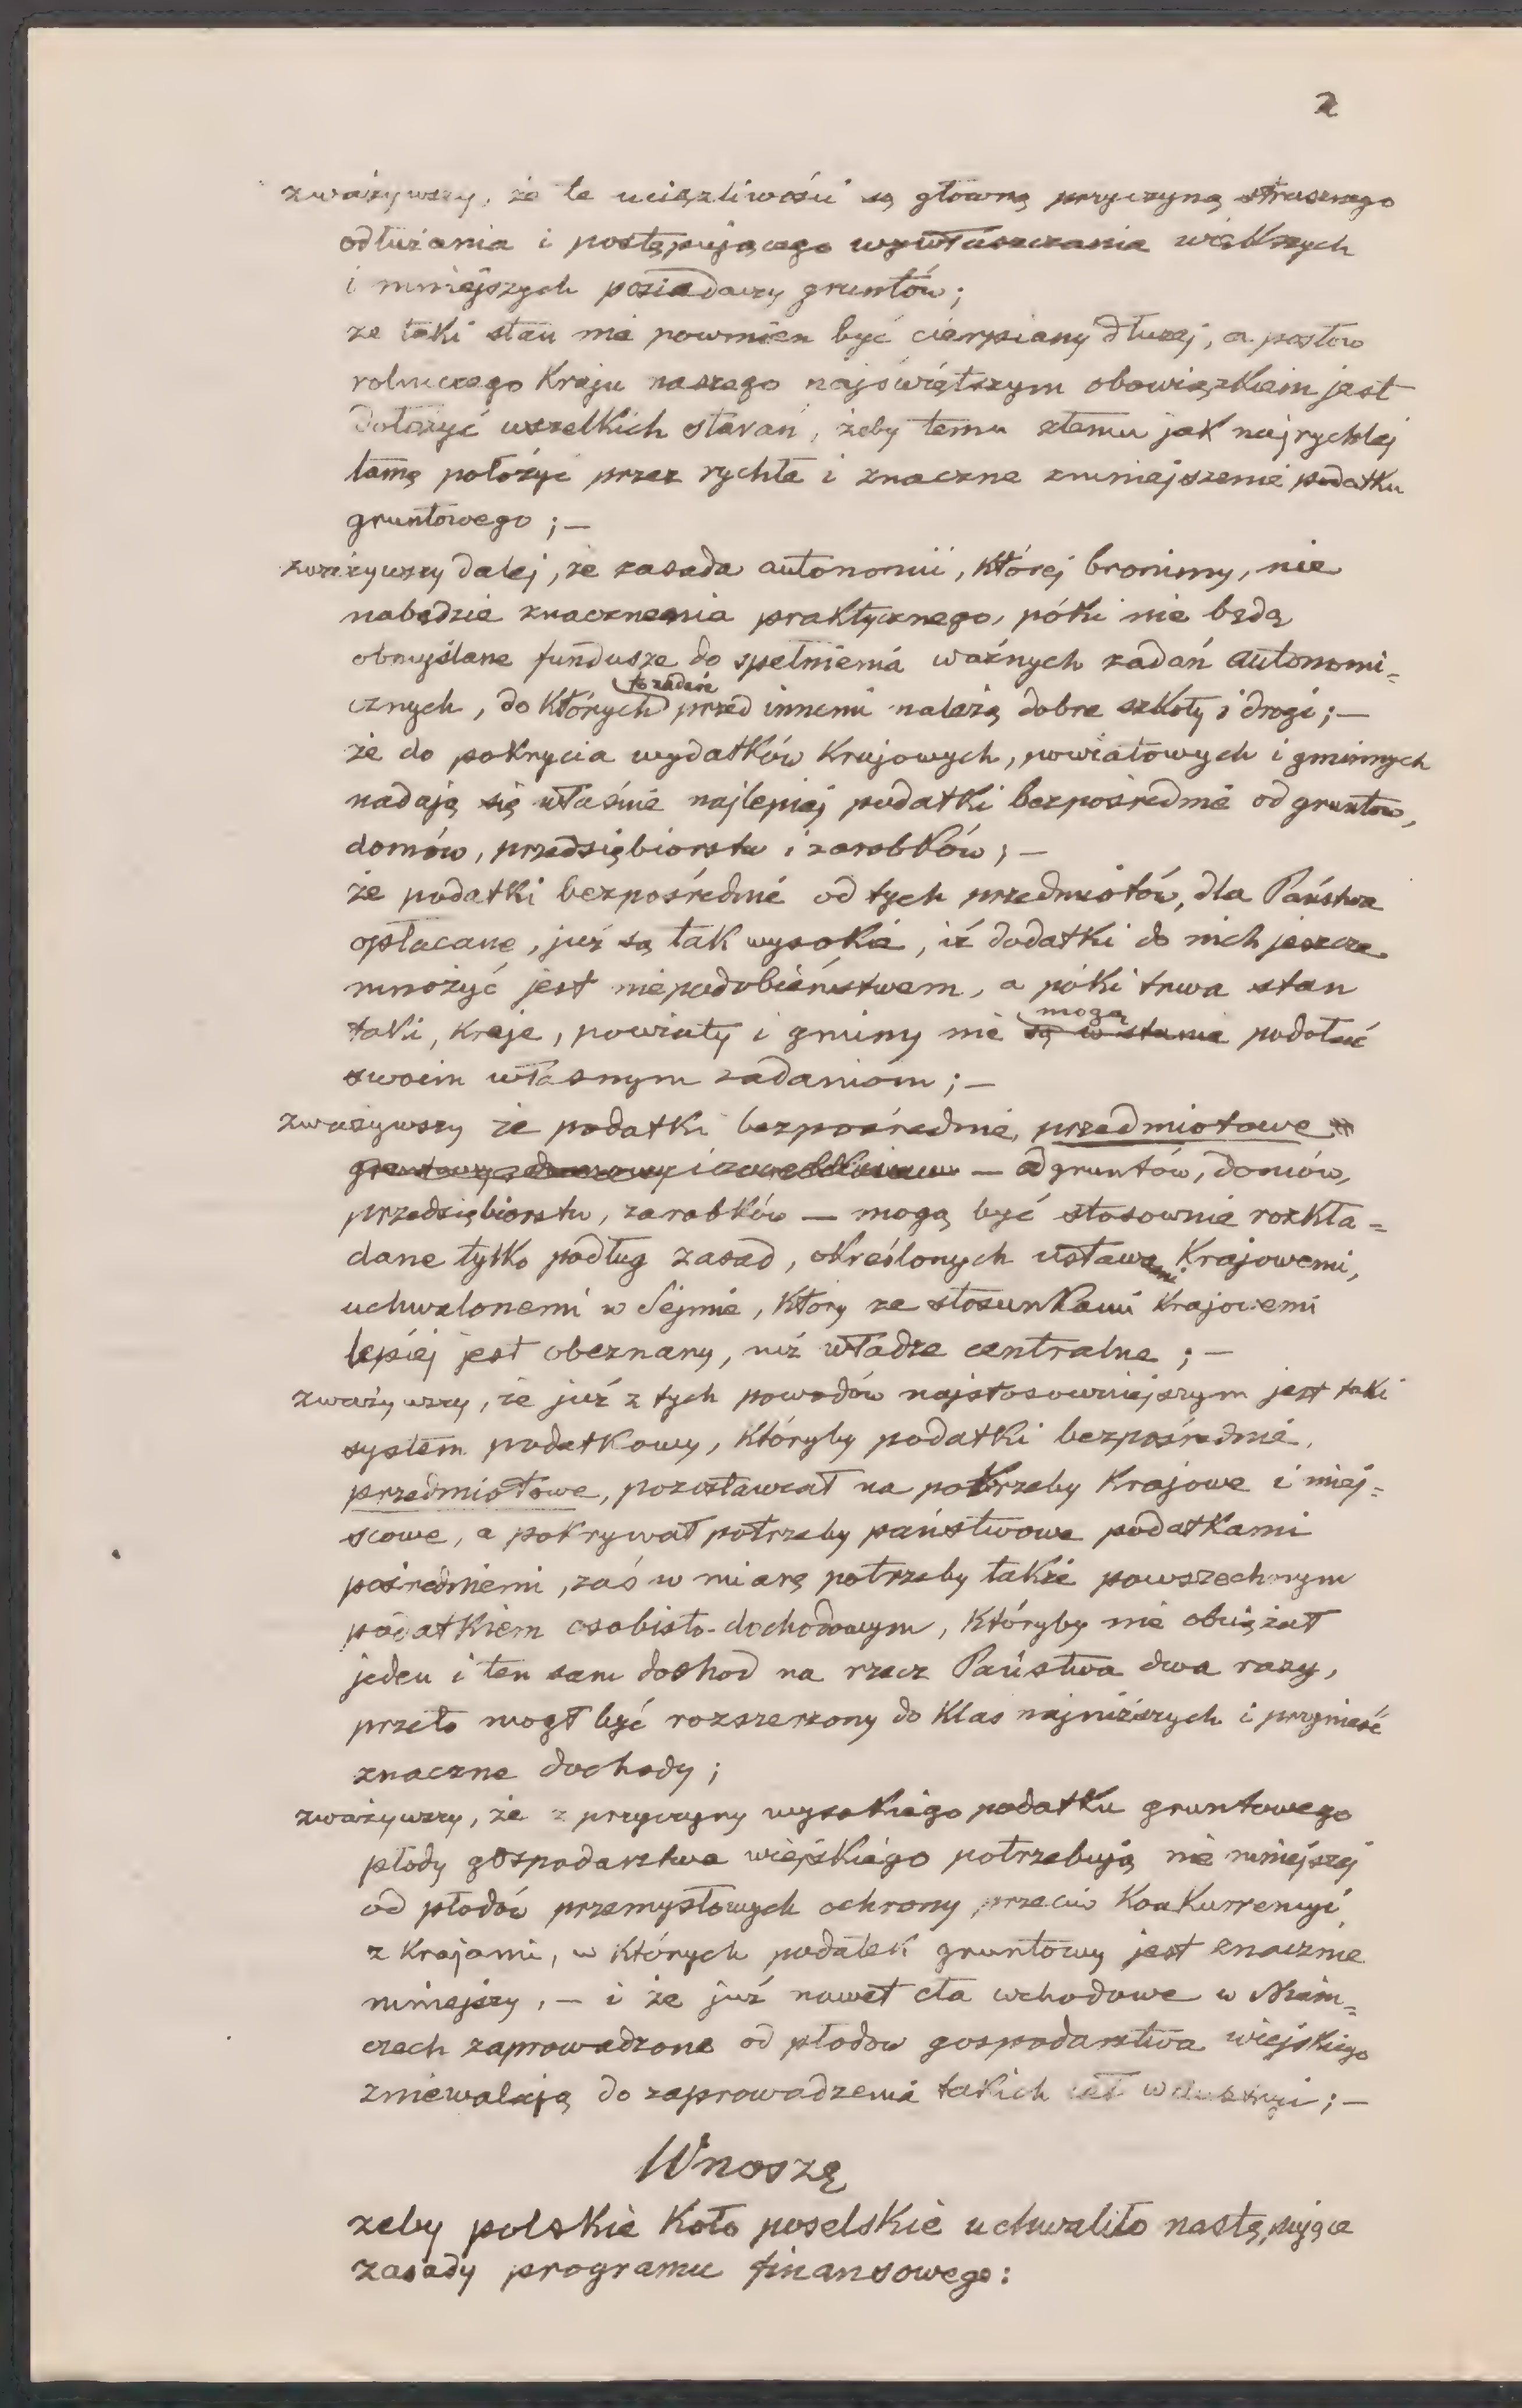 2
zważywszy, że te uciążliwości są główną przyczyną strasznego
odłużania i postępującego wywłaszczania większych
i mniejszych posiadaczy gruntów;
że taki stan nie powinien być cierpiany dłużej, a posłów
rolniczego Kraju naszego najświętszym obowiązkiem jest
dołożyć wszelkich starań, żeby temu złemu jak najrychlej
tamę położyć przez rychłe i znaczne zmniejszenie podatku
gruntowego; —
zważywszy dalej, że zasada autonomii, której bronimy, nie
nabędzie znaczenia praktycznego, póki nie będą
obmyślane fundusze do spełnienia ważnych zadań autonomi=
cznych, do których to zadań przed innemi należą dobre szkoły i drogi; —
że do pokrycia wydatków Krajowych, powiatowych i gminnych
nadają się właśnie najlepiej podatki bezpośrednie od gruntów,
domów, przedsiębiorstw i zarobków; —
że podatki bezpośrednie od tych przedmiotów, dla Państwa
opłacane, już są tak wysokie, iż dodatki do nich jeszcze
mnożyć jest niepodobieństwem, a póki trwa stan
taki, kraje, powiaty i gminy nie są w stanie mogą podołać
swoim własnym zadaniom; —
zważywszy że podatki bezpośrednie, przedmiotowe
— od gruntów, domów,
przedsiębiorstw, zarobków — mogą być stosownie rozkła=
dane tylko podług zasad, określonych ustawami Krajowemi,
uchwalonemi w Sejmie, który ze stosunkami Krajowemi
lepiej jest obeznany, niż władze centralne; —
zważywszy, że już z tych powodów najstosowniejszym jest taki
system podatkowy, któryby podatki bezpośrednie,
przedmiotowe, pozostawiał na potrzeby Krajowe i miej=
scowe, a pokrywał potrzeby państwowe podatkami
pośredniemi, zaś w miarę potrzeby także powszechnym
podatkiem osobisto-dochodowym, któryby nie obciążał
jeden i ten sam dochod na rzecz Państwa dwa razy,
przeto mogł być rozszerzony do klas najniższych i przynieść
znaczne dochody;
zważywszy, że z przyczyny wysokiego podatku gruntowego
płody gospodarstwa wiejskiego potrzebują nie mniejszej
od płodów przemysłowych ochrony przeciw Konkurrencyi
z Krajami, w których podatek gruntowy jest znacznie
mniejszy, — i że już nawet cła wchodowe w Niem=
czech zaprowadzone od płodów gospodarstwa wiejskiego
zniewalają do zaprowadzenia takich ceł w Austryi; —
Wnoszę
żeby polskie Koło poselskie uchwaliło następujące
zasady programu finansowego: